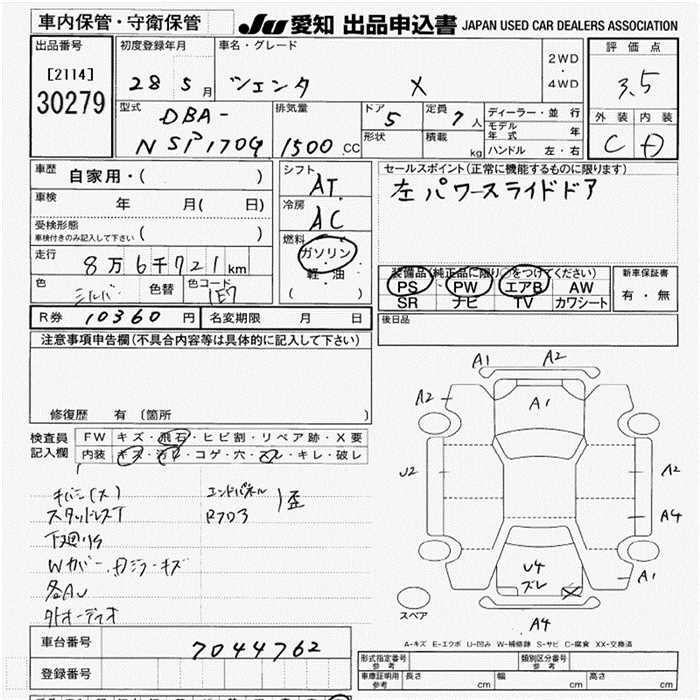 車内保管・守衛保管
JU 愛知 出品申込書 JAPAN USED CAR DEALERS ASSOCIATION
出品番号
[2114]
30279
初度登録年月
28 5 月
車名・グレード
シエンタ X
2WD
・
4WD
評価点
3.5
外装 内装
C D
型式
DBA-
NSP170G
排気量
1500 cc
ドア
5
形状
定員
7 人
積載
kg
ディーラー・並行
モデル年式 年
ハンドル 左・右
車歴
自家用・( )
車検
年 月( 日)
受検形態
車検付きのみ記入して下さい ( )
走行
8万6千721 km
色
シルバー
色替
色コード
1E7
シフト
AT
冷房
AC
燃料
ガソリン
・
軽・油
( )
セールスポイント(正常に機能するものに限ります)
左パワースライドドア
装備品(純正品に限り○をつけてください)
PS PW エアB AW
SR ナビ TV カワシート
新車保証書
有・無
R券 10360 円 名変期限 月 日
後日品
注意事項申告欄(不具合内容等は具体的に記入して下さい)
修復歴 有 〔箇所 〕
検査員
記入欄
FW キズ・飛石・ヒビ割・リペア跡・X要
内装 キズ・汚れ・コゲ・穴・スレ・キレ・破レ
キバミ(X)
スタッドレスT
下廻りS
Wカバー、Fミラーキズ
各AU
外オーディオ
エンドパネル
歪
A1 A2
A2
A1
U2
A2
A4
U4
ズレ
A1
A4
スペア
A-キズ E-エクボ U-凹み W-補修跡 S-サビ C-腐食 XX-交換済
車台番号 7044762
登録番号
形式指定番号
参考
類別区分番号
参考
車庫証明用
参考
長さ cm 幅 cm 高さ cm